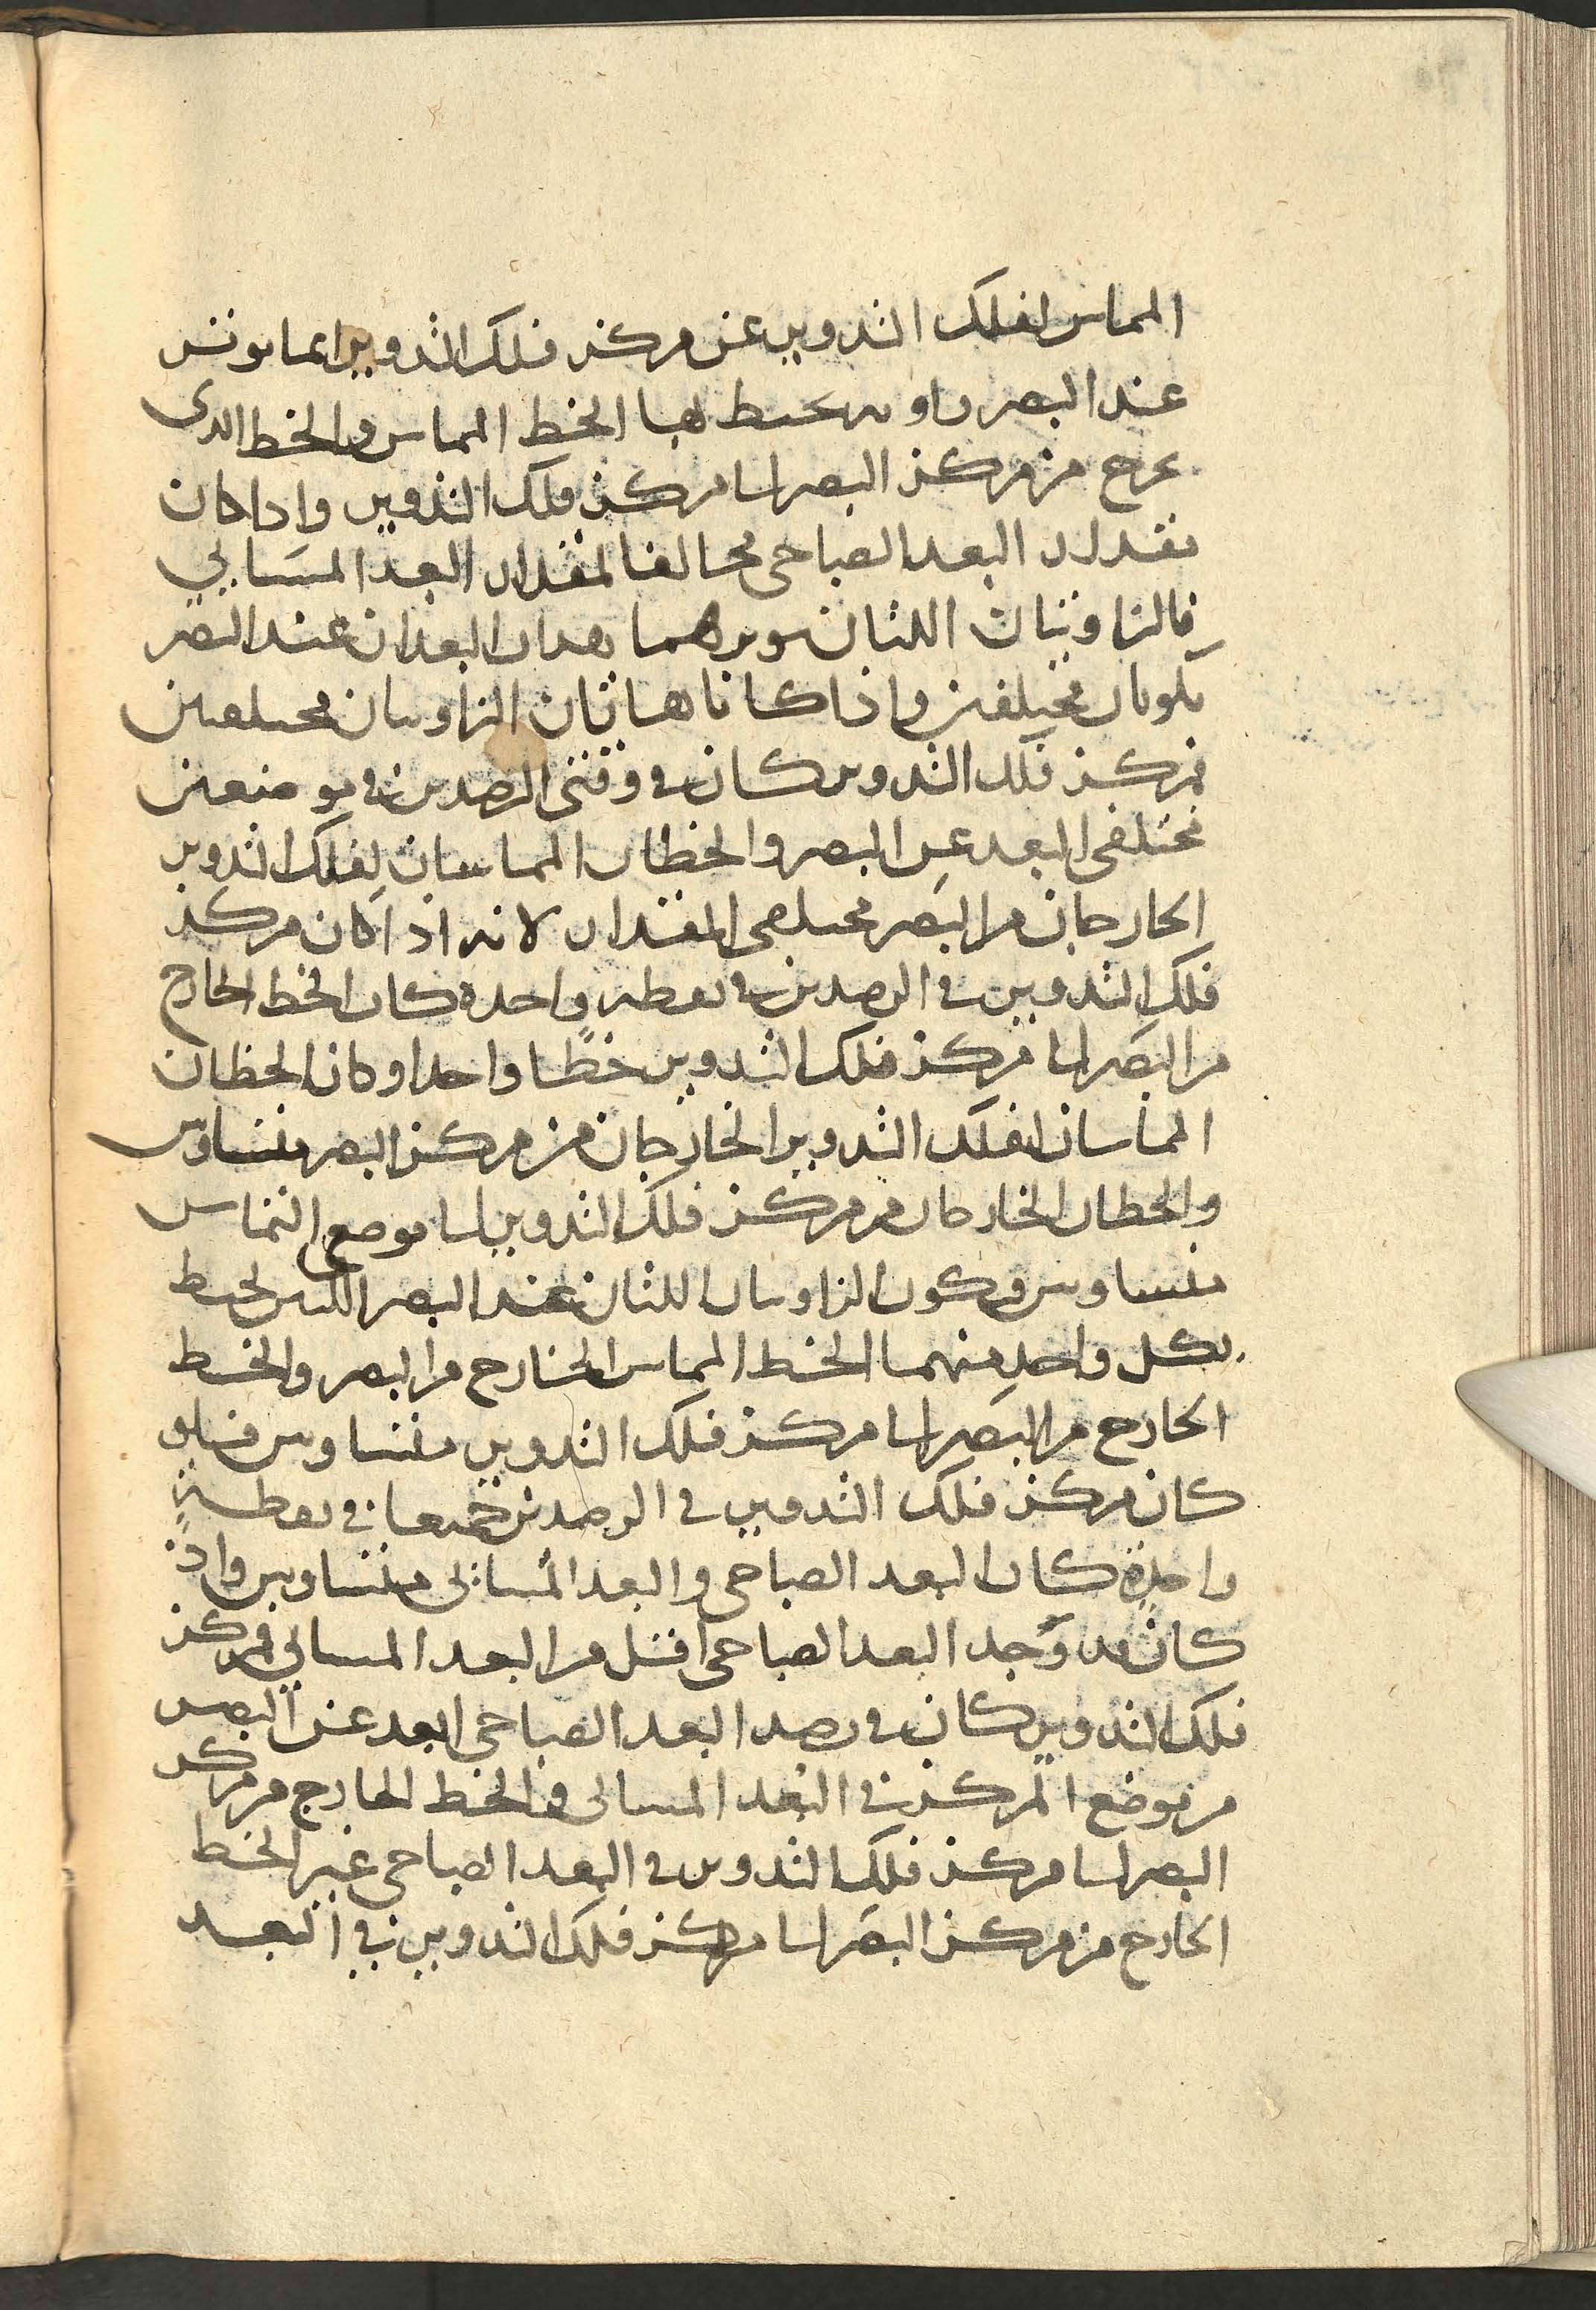 المماس لفلك التدوير عن مركز فلك التدوير انما يوتر
عند البصر زاويه يحيط بها الخط المماس والخط الذى
يخرج من مركز البصر الى مركز فلك التدوير واذا كان
مقدار البعد الصباحى مخالفا لمقدار البعد المسائي
فالزاويتان اللتان يوترهما هذان البعدان عند البصر
يكونان مختلفتين واذا كانا هاتان الزاويتان مختلفتين
فمركز فلك التدوير كان فى وقتى الرصدين فى موضعين
مختلفى البعد عن البصر والخطان المماسان لفلك التدوير
الخارجان من البصر مختلفى المقدار لانه اذا كان مركز
فلك التدوير فى الرصدين فى نقطه واحدة كان الخط الخارج
من البصر الى مركز فلك التدوير خطًا واحدا وكان الخطان
المماسان لفلك التدوير الخارجان من مركز البصر متساويين
والخطان الخارجان من مركز فلك التدوير الى موضع التماس
متساويين وتكون الزاويتان اللتان عند البصر اللتين يحيط
بكل واحدٍ منهما الخط المماس الخارج من البصر والخط
الخارج من البصر الى مركز فلك التدوير متساويين فلو
كان مركز فلك التدوير فى الرصدين جميعا فى نقطةٍ
واحدةٍ كان البعد الصباحى والبعد المسائى متساويين واذ
كان قد وُجد البعد الصباحى اقل من البعد المسائي فمركز
فلك التدوير كان فى رصد البعد الصباحى ابعد عن البصر
من موضع المركز فى البعد المسائى والخط الخارج من مركز
البصر الى مركز فلك التدوير فى البعد الصباحى غير الخط
الخارج من مركز البصر الى مركز فلك التدوير فى البعد